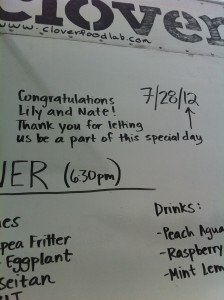 Clover
www.cloverfoodlab.com
Congratulations
Lily and Nate!
7/28/12
Thank you for letting
us be a part of this special day
(6:30pm)
Drinks:
Fritter
Eggplant
seitan
-Peach
-Raspberry
-Mint